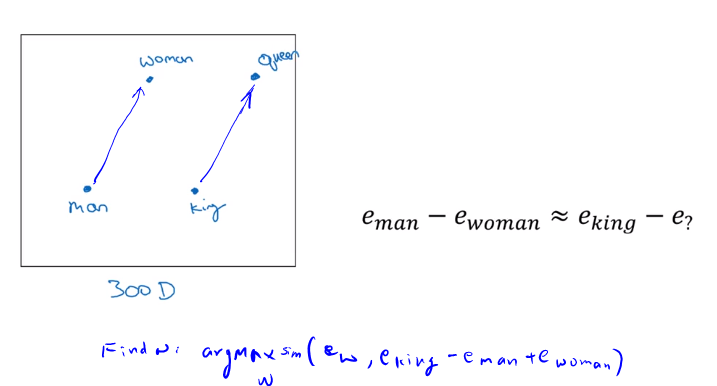 woman queen
man king
e_man − e_woman ≈ e_king − e_?
300D
Find w: argmax sim(e_w, e_king − e_man + e_woman)
w